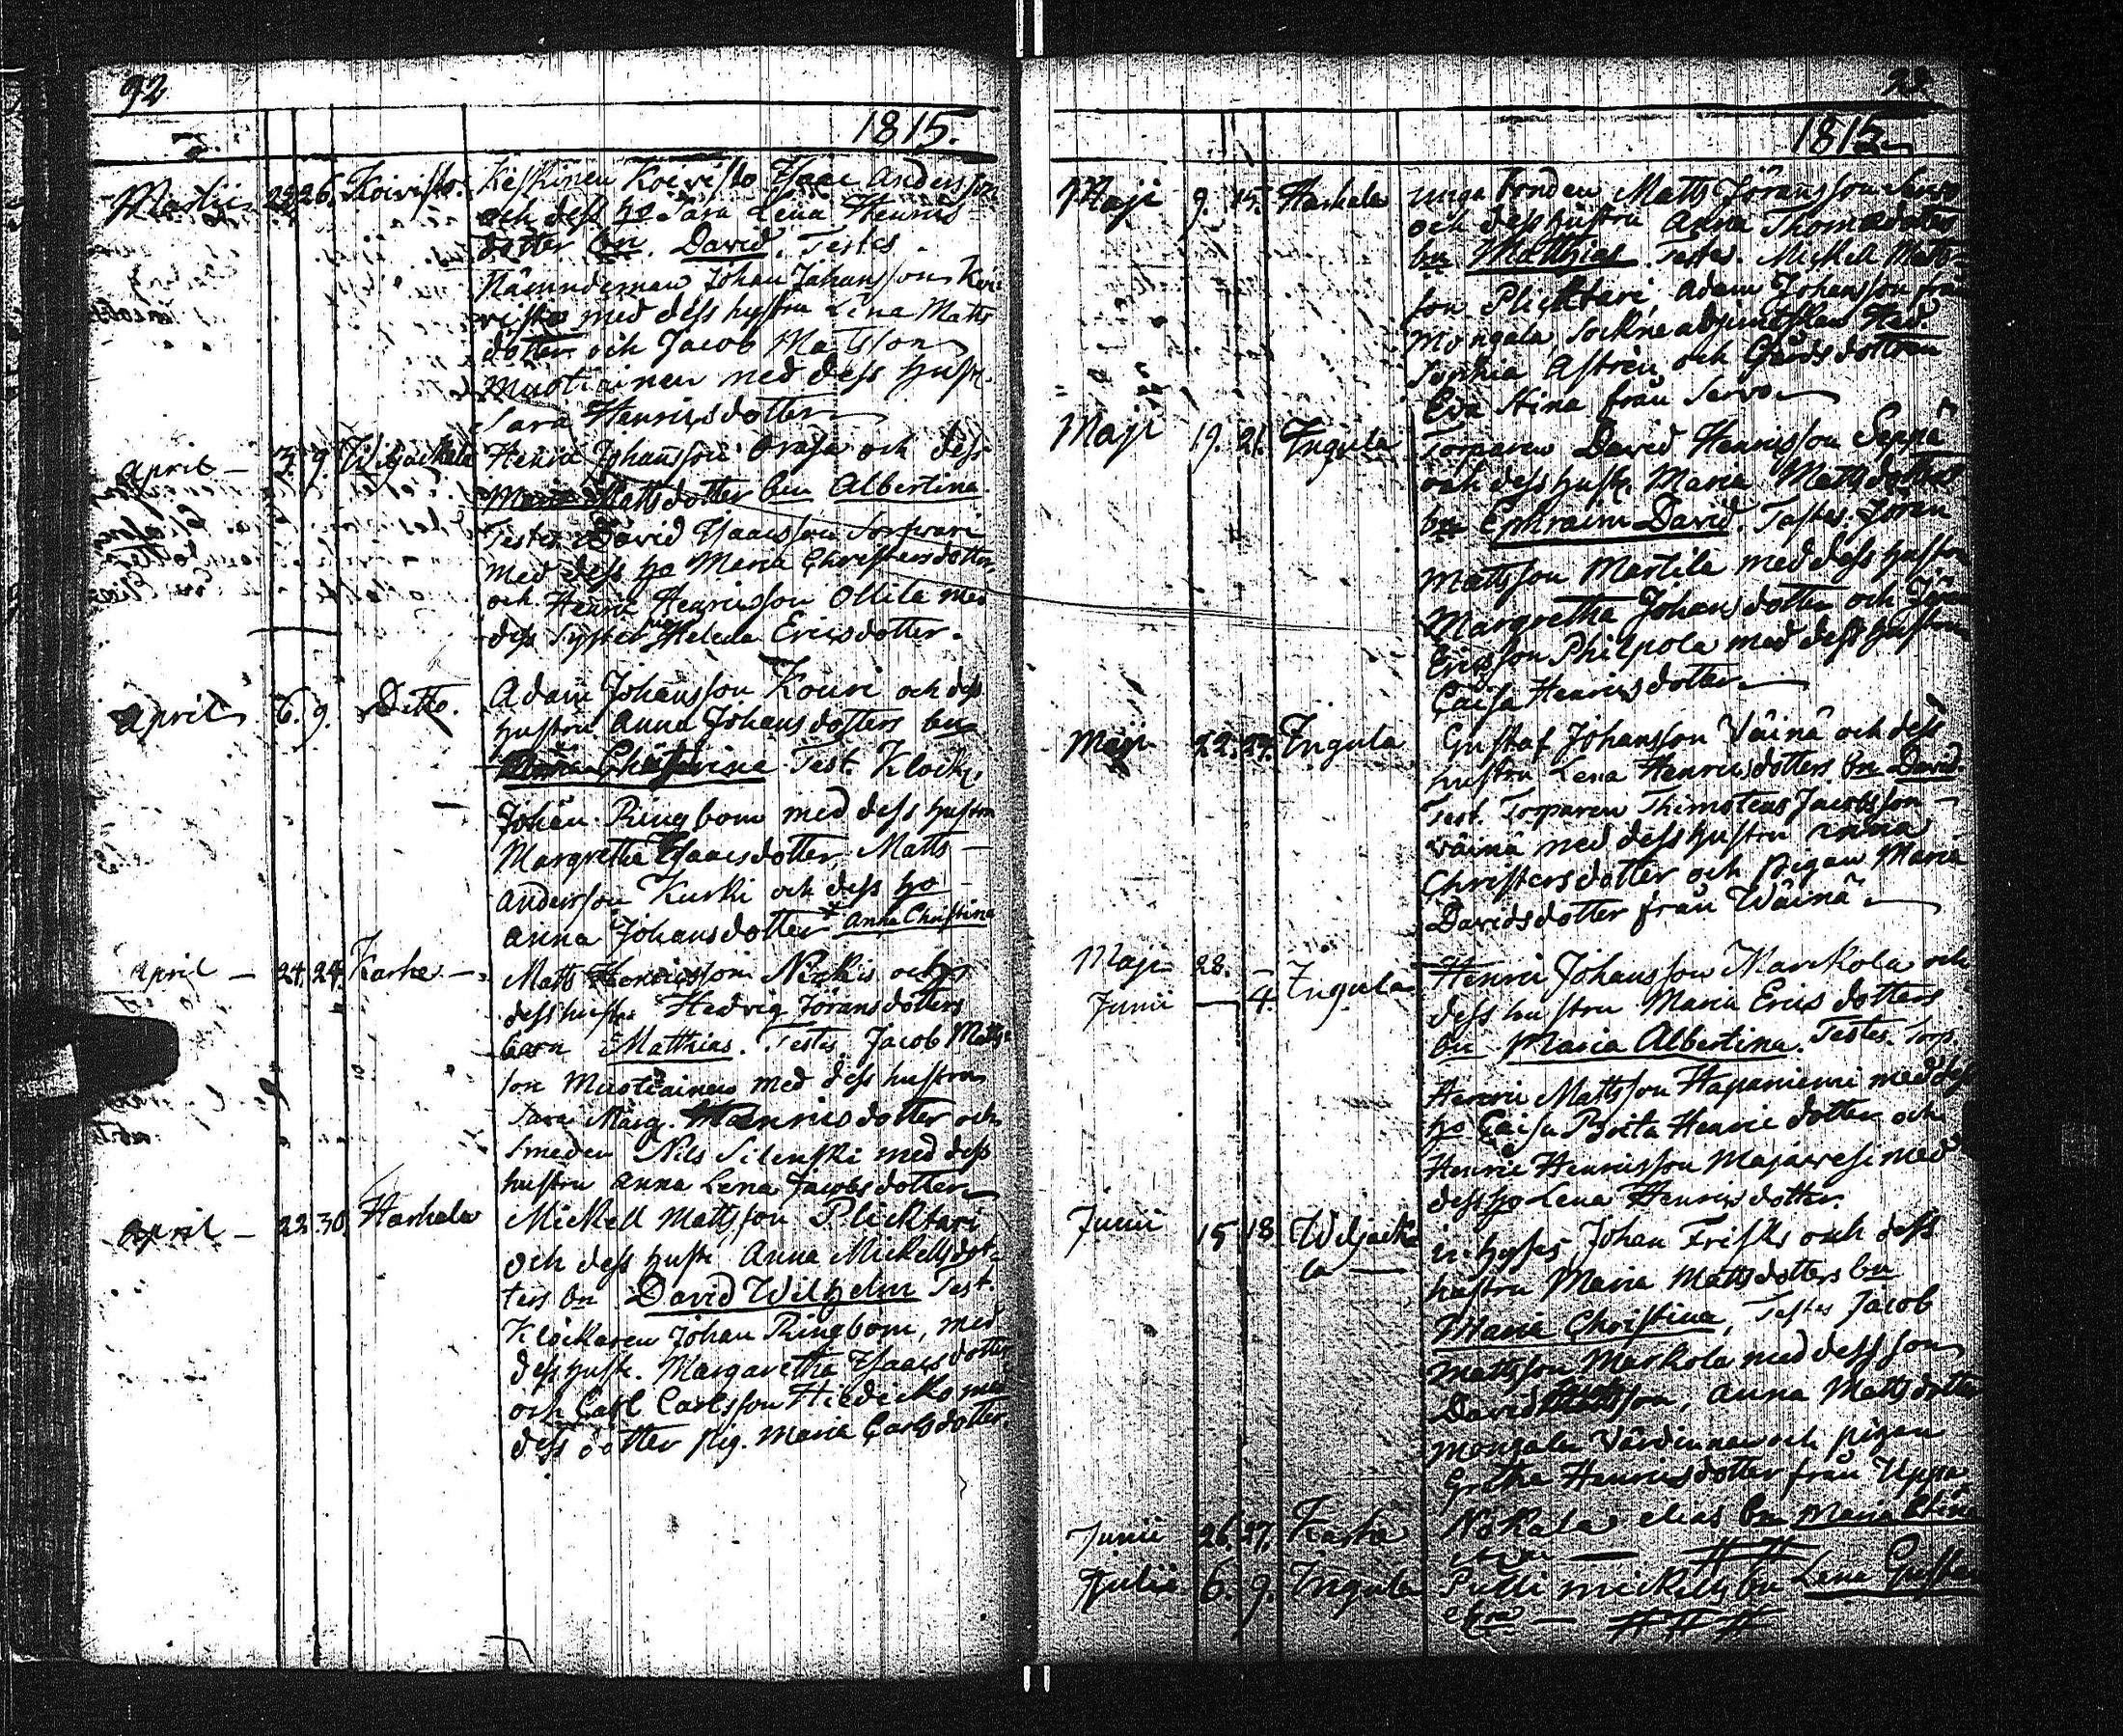 92
1815.
Martii 22 26. Koivisto. Keskinen Koivisto Isaac Andersson
och dess ho Sara Lena Henrics
dotter bn. David. Testes
Nämndeman Johan Johansson Koi
visto med dess hustru Lena Matts
dotter och Jacob Matsson
Muotiainen med dess hustr.
Sara Henricsdotter
April — 3. 9. Wiljackala Henric Johansson Orasa och dess
Maria Mattsdotter bn Albertina.
Testes David Isaacsson Sorwari
med dess ho Maria Christersdotter,
och Henric Henricsson Ollila med
dess Syster Helena Ericsdotter.
April 6. 9. Ditto. Adam Johansson Kouri och dess
hustru Anna Johansdotters bn
Christina Test. Klock.
Johan Ringbom med dess hustru
Margretha Isaacsdotter, Matts
Andersson Kurki och dess ho
Anna Johansdotter * Anna Christina
April — 24. 24. Karhe — Matts Henricsson Nickis och
dess hustru Hedvig Jöransdotters
barn Matthias. Testes Jacob Matts
son Muotiainen med dess hustru
Sara Marg. Henricsdotter och
Smeden Nils Silenski med dess
hustru Anna Lena Jacobsdotter
April — 22. 30. Harhala Mickell Mattsson Plicktari
och dess hustr. Anna Mickellsdot-
ters bn David Wilhelm Test.
Klockaren Johan Ringbom, med
dess hustr. Margaretha Isaacsdotter,
och Carl Carlsson Hiedicko med
dess dotter pig. Maria Carlsdotter
1815
Maji 9. 15. Harhala unga bonden Matts Jöransson Servo
och dess hustru Anna Thomasdotters
bn Matthias. Testes. Mickell Matts-
son Plicktari, Adam Johansson från
Mongala Sockne adjunctskan Hed.
Sophia Astrén och Gårdsdottren
Eva Stina från Servo
Maji 19. 21. Ingula Torparen David Henricsson Seppä
och dess hustr. Maria Mattsdotters
bn Ephraim David. Testes: Jöran
Mattsson Martila med dess hustru
Margretha Johansdotter och
Ericsson Philpola med dess hustru
Caisa Henricsdotter
Maji 22. 27. Ingula Gustaf Johansson Väinä och dess
hustru Lena Henricsdotters bn David
Test. Torparen Thimoteus Jacobsson
Väinä med dess hustru Anna
Christersdotter och pigan Maria
Davidsdotter från Wäinä
Maji 28. —
Junii — 4. Ingula Henric Johansson Markola och
dess hustru Maria Ericsdotters
bn Maria Albertina. Testes. Torp
Henric Mattsson Hapaniemi med dess
ho Caisa Brita Henricdotter och
Henric Henricsson Majavesi med
dess ho Lena Henricsdotter.
Junii 15 18. Wiljacka
la — inhyses Johan Frisk och dess
hustru Maria Mattsdotters bn
Maria Christina, Testes Jacob
Mattsson Markola med dess son
David Jacobsson, Anna Mattsdotter
Mongala Värdinna och pigan
Gretha Henricsdotter från Uppa
Junii 26. 27. Karhe Nokala elias bn Maria Stina
Julii 6. 9. Ingula Pulli mickells bn Lena Gustava